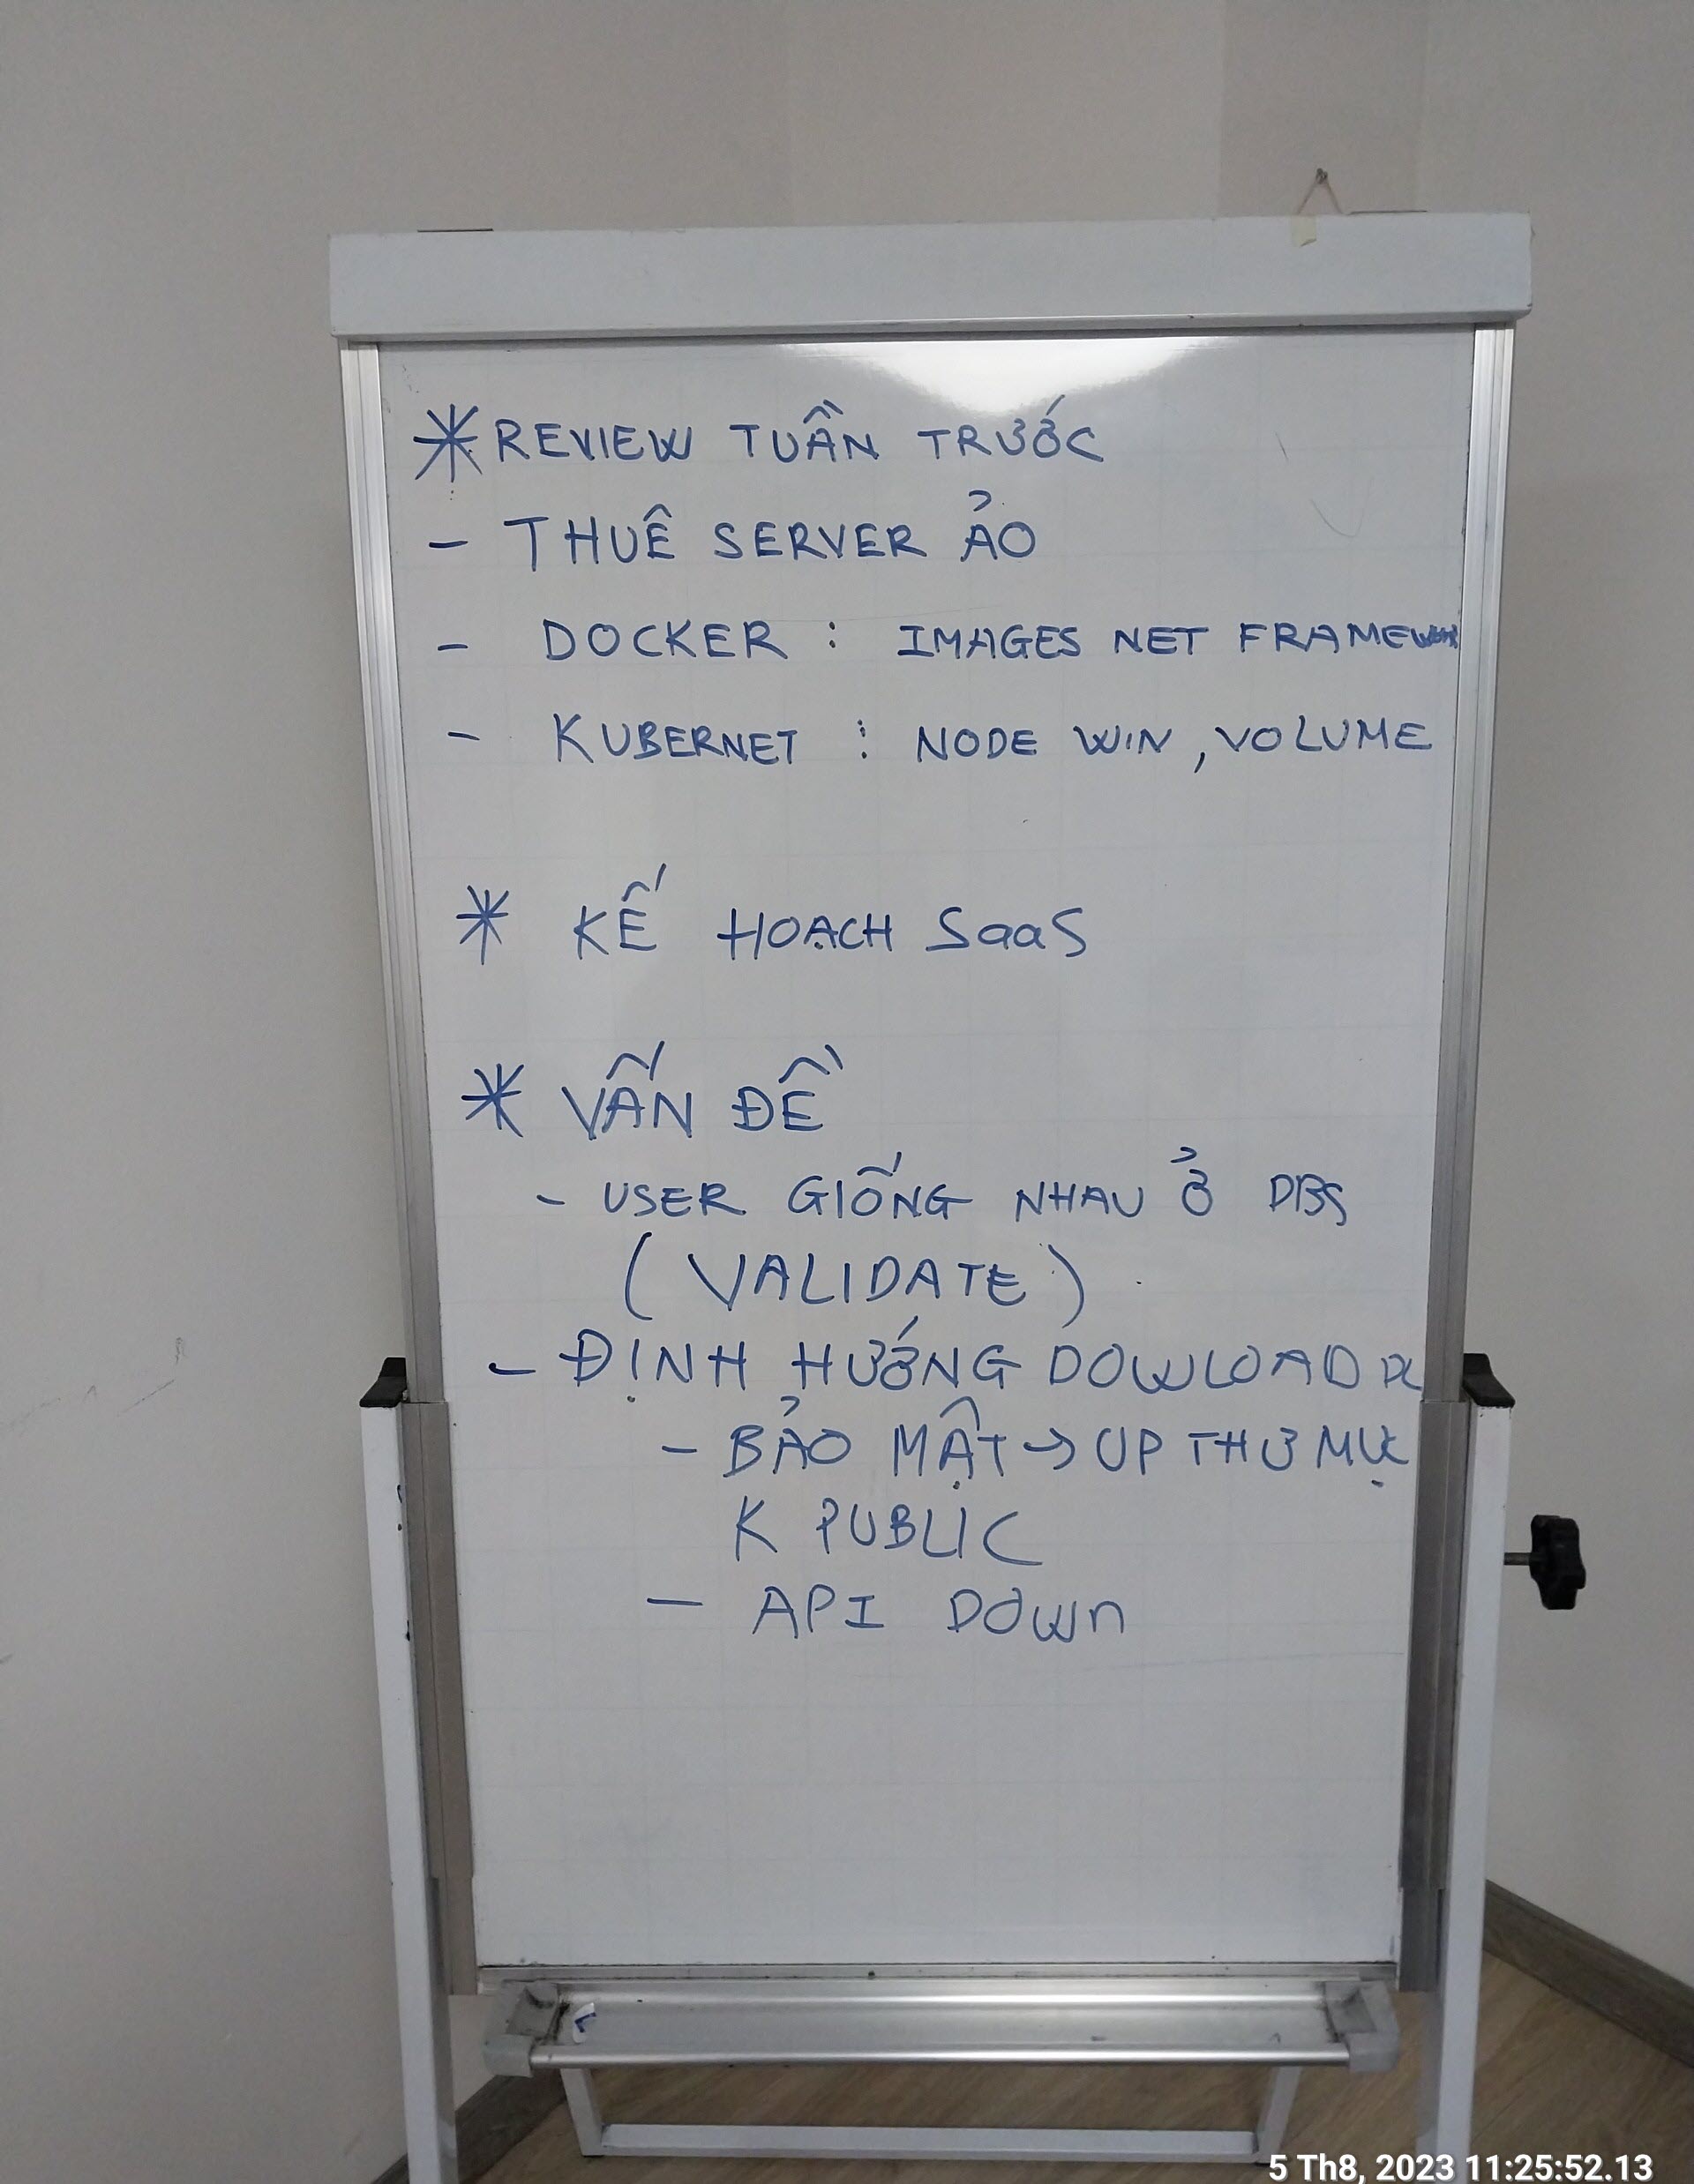 * REVIEW TUẦN TRƯỚC
- THUÊ SERVER ẢO
- DOCKER : IMAGES NET FRAMEWORK
- KUBERNET : NODE WIN , VOLUME
* KẾ HOẠCH SaaS
* VẤN ĐỀ
- USER GIỐNG NHAU Ở DBS
( VALIDATE )
- ĐỊNH HƯỚNG DOWLOAD DL
- BẢO MẬT → UP THƯ MỤC
K PUBLIC
- API DOWN
5 Th8, 2023 11:25:52.13